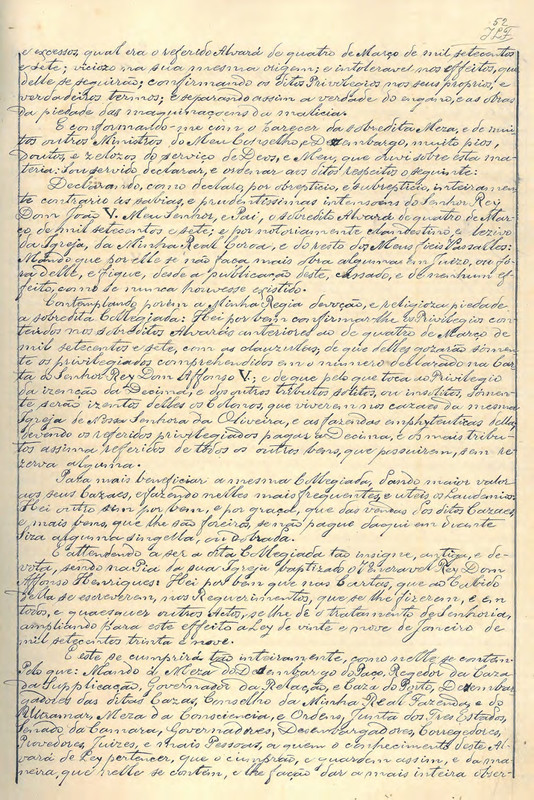 52
e excessos, qual era o referido Alvará de quatro de Março de mil setecentos
e sete; viciozo na sua mesma origem; e intoleravel nos effeitos, que
delle se seguirão; confirmando os ditos Privilegios nos seus proprios, e
verdadeiros termos; e separando assim a verdade do engano, e as obras
da piedade das maquinaçoens da malicia.
E conformando-me com o Parecer da sobredita Meza, e de mui-
tos outros Ministros do Meu Conselho e Dezembargo, muito pios,
Doutos, e zelozos do serviço de Deos, e Meu, que ouvi sobre esta ma-
teria: Sou servido declarar, e ordenar aos ditos respeitos o seguinte:
Declarando, como declaro, por obrepticio, e subrepticio, inteiramen-
te contrario ás sabias, e prudentissimas intensoens do Senhor Rei
Dom João V. Meu Senhor, e Pai, o sobredito Alvará de quatro de Mar-
ço, de mil setecentos e sete; e por notoriamente clandestino e lezivo
da Igreja, da Minha Real Coroa, e do resto dos Meus fieis Vassallos:
Mando que por elle se não faça mais obra alguma em Juizo, ou fo-
ra delle, e fique, desde a publicação deste, cassado, e de nenhum ef-
feito, como se nunca houvesse existido.
Contemplando porem a Minha Regia devoção, e religioza piedade
a sobredita Collegiada: Hei por bem confirmar-lhe os Privilegios con-
teúdos nos sobreditos Alvarás anteriores ao de quatro de Março de
mil setecentos e sete, com as clauzulas, de que delles gozarão somen-
te os privilegiados comprehendidos em o numero declarado na Car-
ta do Senhor Rey Dom Affonso V.; e de que pelo que toca ao Privilegio
da izenção da Decima, e dos outros tributos solitos, ou insolitos, somen-
te serão izentos delles os Colonos, que viverem nos cazaes da mesma
Igreja de Nossa Senhora da Oliveira, e as fazendas emphyteutizas della,
devendo os referidos privilegiados pagar a Decima, e os mais tribu-
tos assima referidos de todos os outros bens, que possuirem, sem re-
zerva alguma.
Para mais beneficiar a mesma Collegiada, dando maior valor
aos seus Cazaes, e fazendo nelles mais frequentes, e uteis os Laudemios:
Hei outro sim por bem, e por graça, que das vendas dos ditos Cazaes,
e mais bens, que lhe são foreiros, se não pague daqui em diante
Siza alguma singella, ou dobrada.
E attendendo a ser a dita Collegiada tão insigne, antiga, e de-
vota, sendo na Pia da sua Igreja baptizado o Veneravel Rey Dom
Affonso Henriques: Hei por bem que nas Cartas, que ao Cabido
della se escreverem, nos Requerimentos, que se lhe fizerem, e em
todos, e quaesquer outros Actos, se lhe dê o tratamento de Senhoria,
ampliando para este effeito a Ley de vinte e nove de Janeiro de
mil setecentos trinta e nove.
E este se cumprirá tão inteiramente, como nelle se contem.
Pelo que: Mando á Meza do Dezembargo do Paço, Regedor da Caza
da Supplicação, Governador da Relação, e Caza do Porto, Dezembar-
gadores das ditas Cazas, Conselho da Minha Real Fazenda, e do
Ultramar, Meza da Consciencia, e Ordens, Junta dos Tres Estados,
Senado da Camara, Governadores, Dezembargadores, Corregedores,
Provedores, Juizes, e mais Pessoas, a quem o conhecimento deste Al-
vará de Ley pertencer, que o cumprão, e guardem assim, e da ma-
neira, que nelle se contem, e lhe fação dar a mais inteira obser-